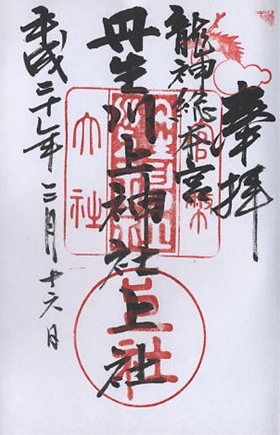 奉拝
龍神総本宮
丹生川上神社上社
平成二十年三月十六日
官幣
大社
上社